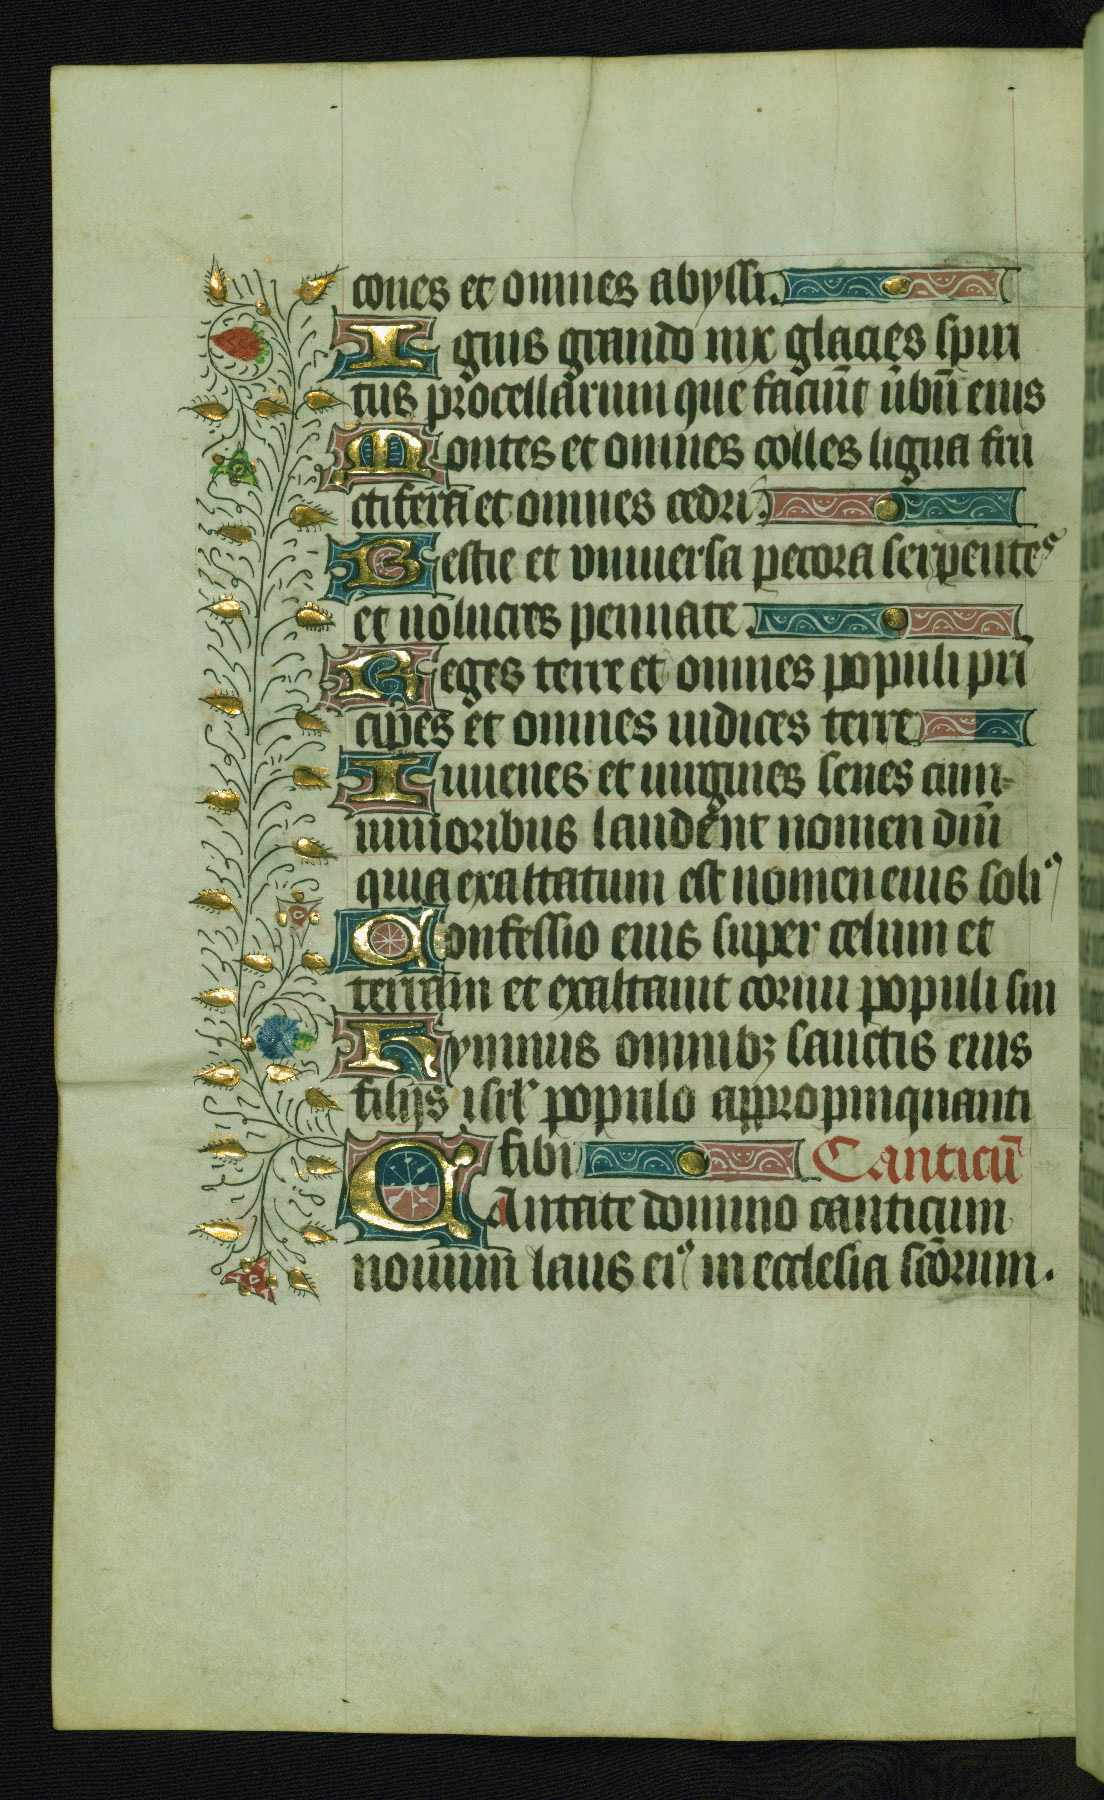 cones et omnes abyssi.
Ignis grando nix glacies spiri
tus procellarum que faciūt ūbū eius
Montes et omnes colles ligna fru
ctifera et omnes cedri.
Bestie et uniuersa pecora serpentes
et uolucres pennate.
Reges terre et omnes populi prī
cipes et omnes iudices terre
Iuuenes et uirgines senes cum
iunioribus laudent nomen dn̄i
quia exaltatum est nomen eius soliꝰ
Confessio eius super celum et
terram et exaltauit cornu populi sui
Hymnus omnibꝫ sanctis eius
filijs isrl' populo appropinquanti
sibi Canticū
Cantate domino canticum
nouum laus eiꝰ in ecclesia scōrum.